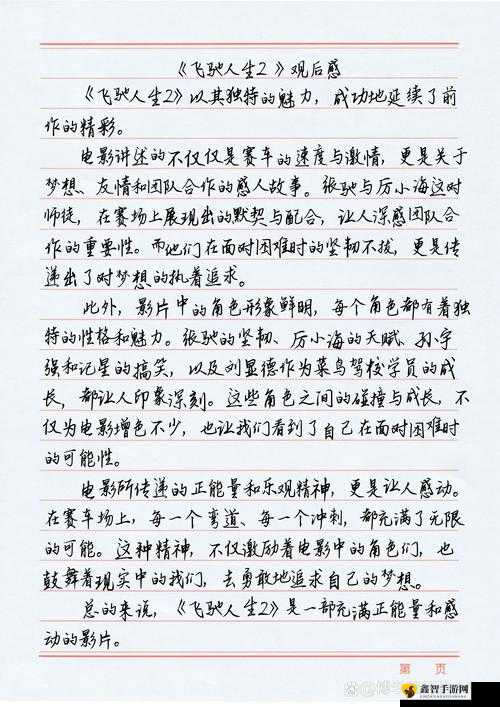 《飞驰人生2》观后感
《飞驰人生2》以其独特的魅力，成功地延续了前
作的精彩。
电影讲述的不仅仅是赛车的速度与激情，更是关于
梦想、友情和团队合作的感人故事。张驰与厉小海这对
师徒，在赛场上展现出的默契与配合，让人深感团队合
作的重要性。而他们在面对困难时的坚韧不拔，更是传
递出了对梦想的执着追求。
此外，影片中的角色形象鲜明，每个角色都有着独
特的性格和魅力。张驰的坚韧、厉小海的天赋、孙宇
强和记星的搞笑，以及刘显德作为菜鸟驾校学员的成
长，都让人印象深刻。这些角色之间的碰撞与成长，不
仅为电影增色不少，也让我们看到了自己在面对困难时
的可能性。
电影所传递的正能量和乐观精神，更是让人感动。
在赛车场上，每一个弯道、每一个冲刺，都充满了无限
的可能。这种精神，不仅激励着电影中的角色们，也
鼓舞着现实中的我们，去勇敢地追求自己的梦想。
总的来说，《飞驰人生2》是一部充满正能量和感
动的影片。
第 页
鑫智手游网